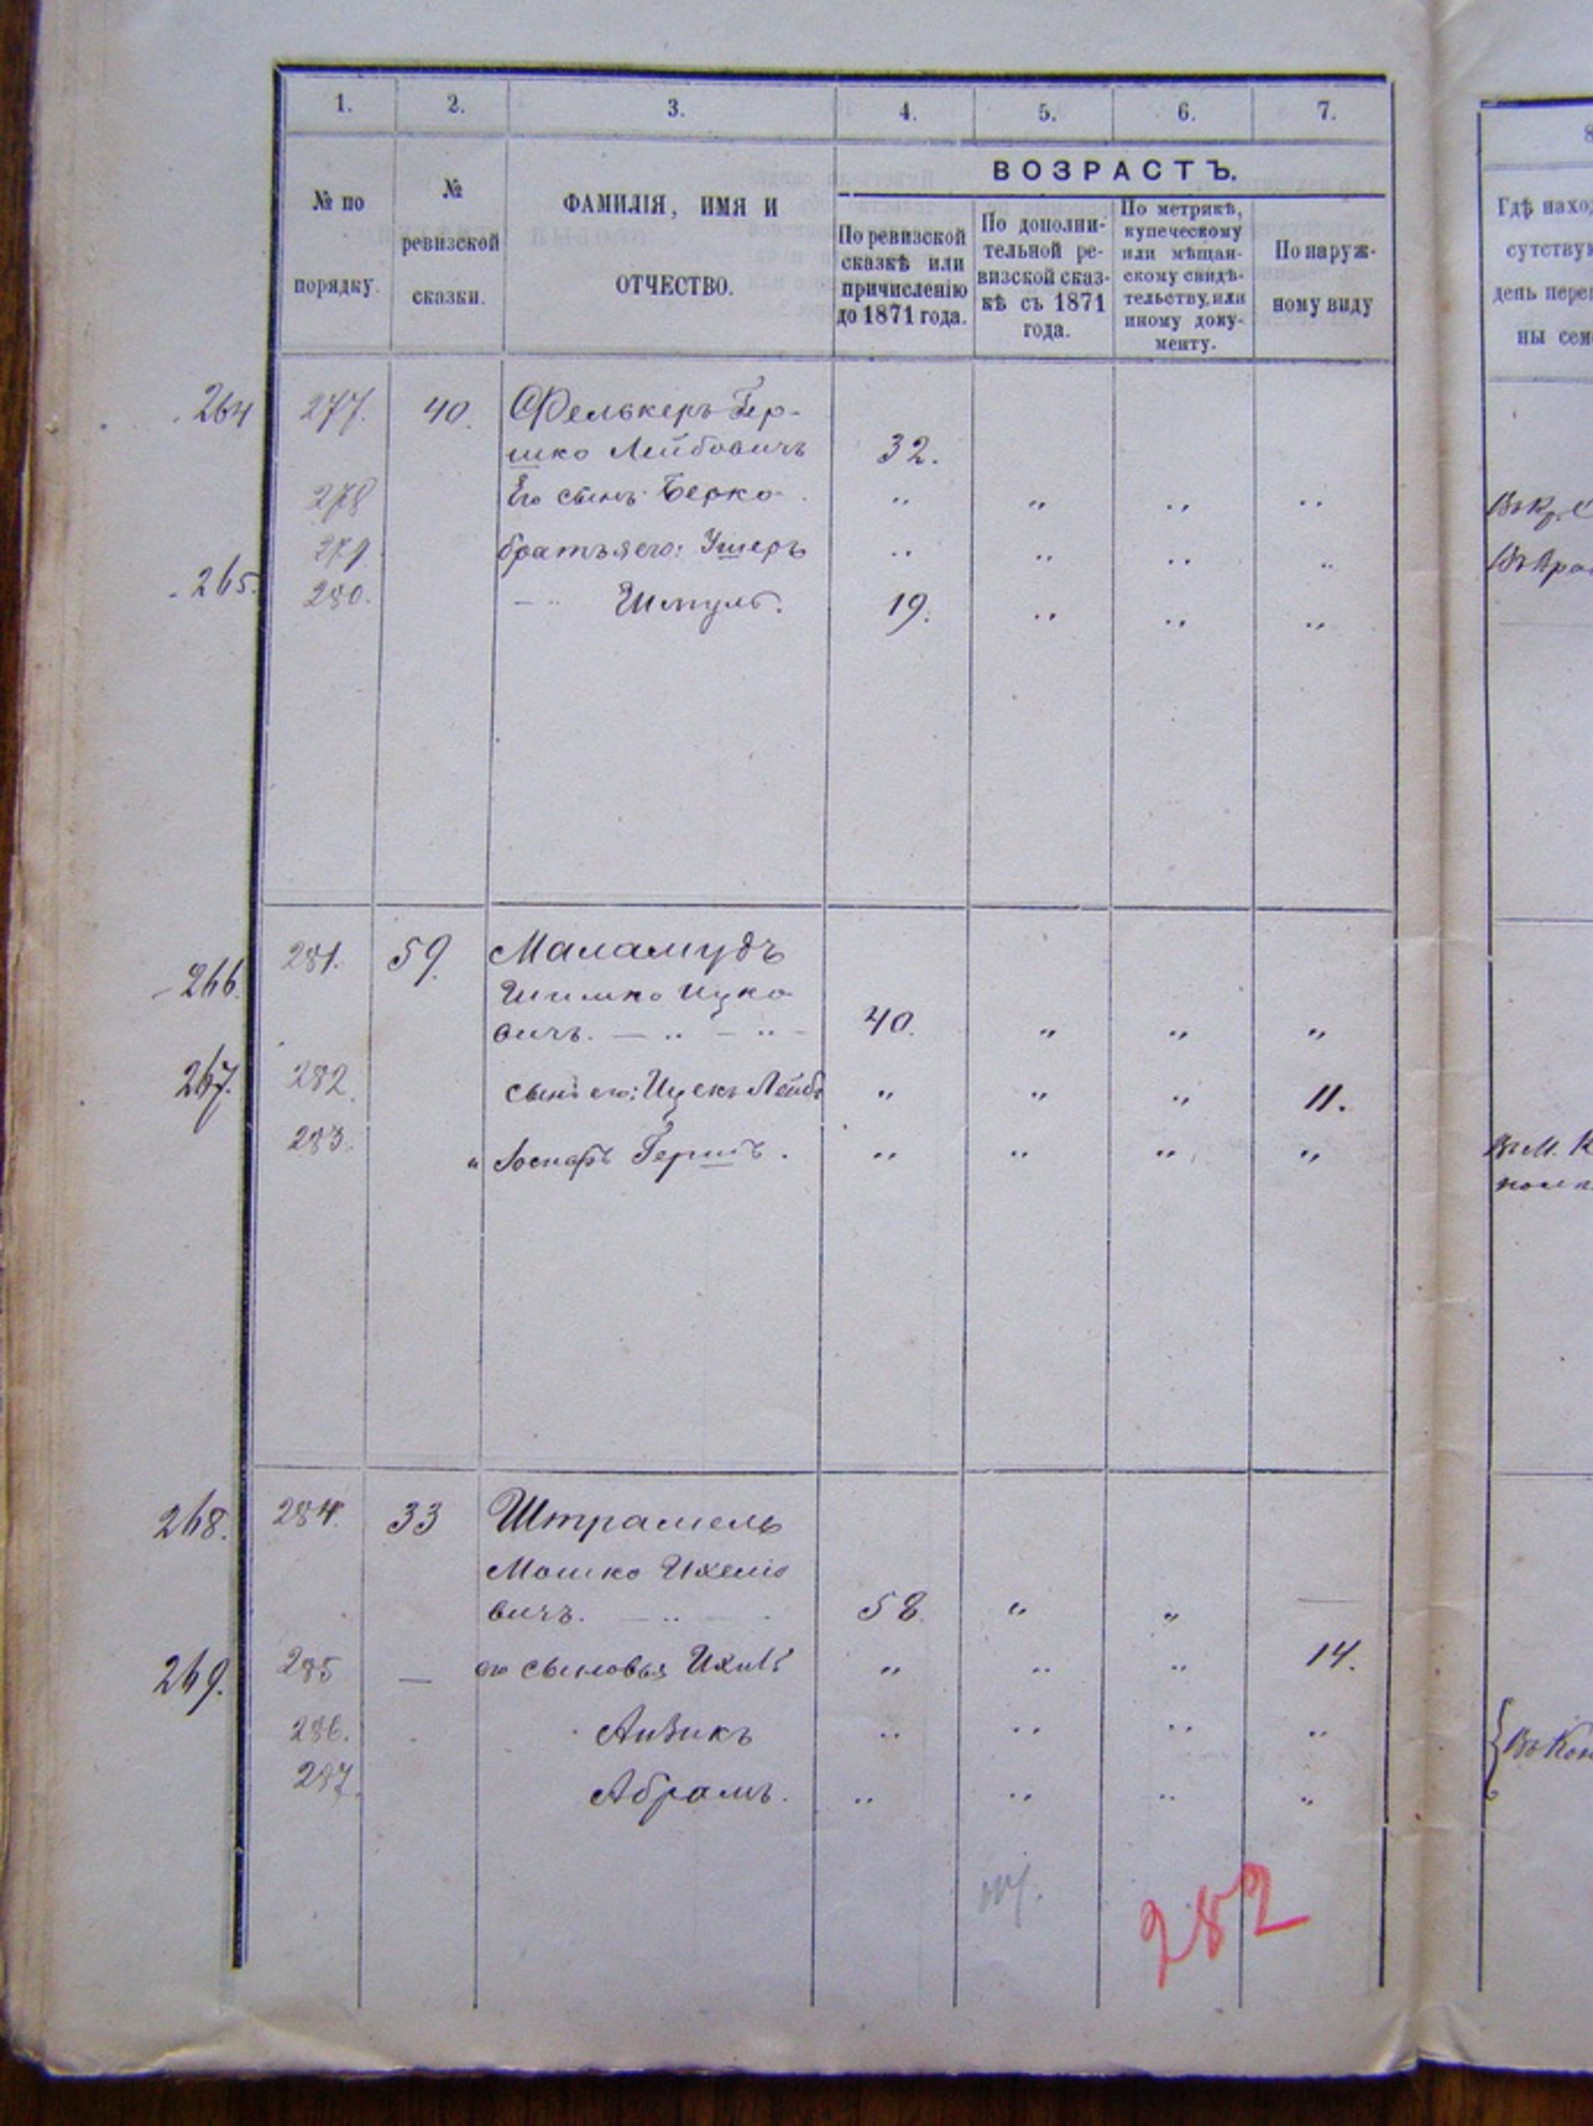 1. 2. 3. 4. 5. 6. 7.
ВОЗРАСТЪ.
№ по
порядку.
№
ревизской
сказки.
ФАМИЛІЯ, ИМЯ И
ОТЧЕСТВО.
По ревизской
сказкѣ или
причисленію
до 1871 года.
По дополни-
тельной ре-
визской сказ-
кѣ съ 1871
года.
По метрикѣ,
купеческому
или мѣщан-
скому свидѣ-
тельству, или
иному доку-
менту.
По наруж-
ному виду
Гдѣ
день
ны
264 277. 40. Фелькеръ Гер-
шко Лейбовичъ 32.
278 Его сынъ Берко „ „ „ „
279 братья его: Ушеръ „ „ „ „
265. 280. — „ Шмуль. 19. „ „ „
281. 59. Маламудъ
266. Шимко Ицко
вичъ. — „ — „ — 40. „ „ „
267. 282. сынъ его: Ицекъ Лейбъ „ „ „ 11.
283. Гершъ. „ „ „ „
268. 284. 33 Штрамель
Мошко Ихелю
вичъ. — „ — 58. „ „ —
269. 285 — его сыновья Ихиль „ „ „ 14.
286. Аизикъ „ „ „ „
287. Абрамъ. „ „ „ „
282